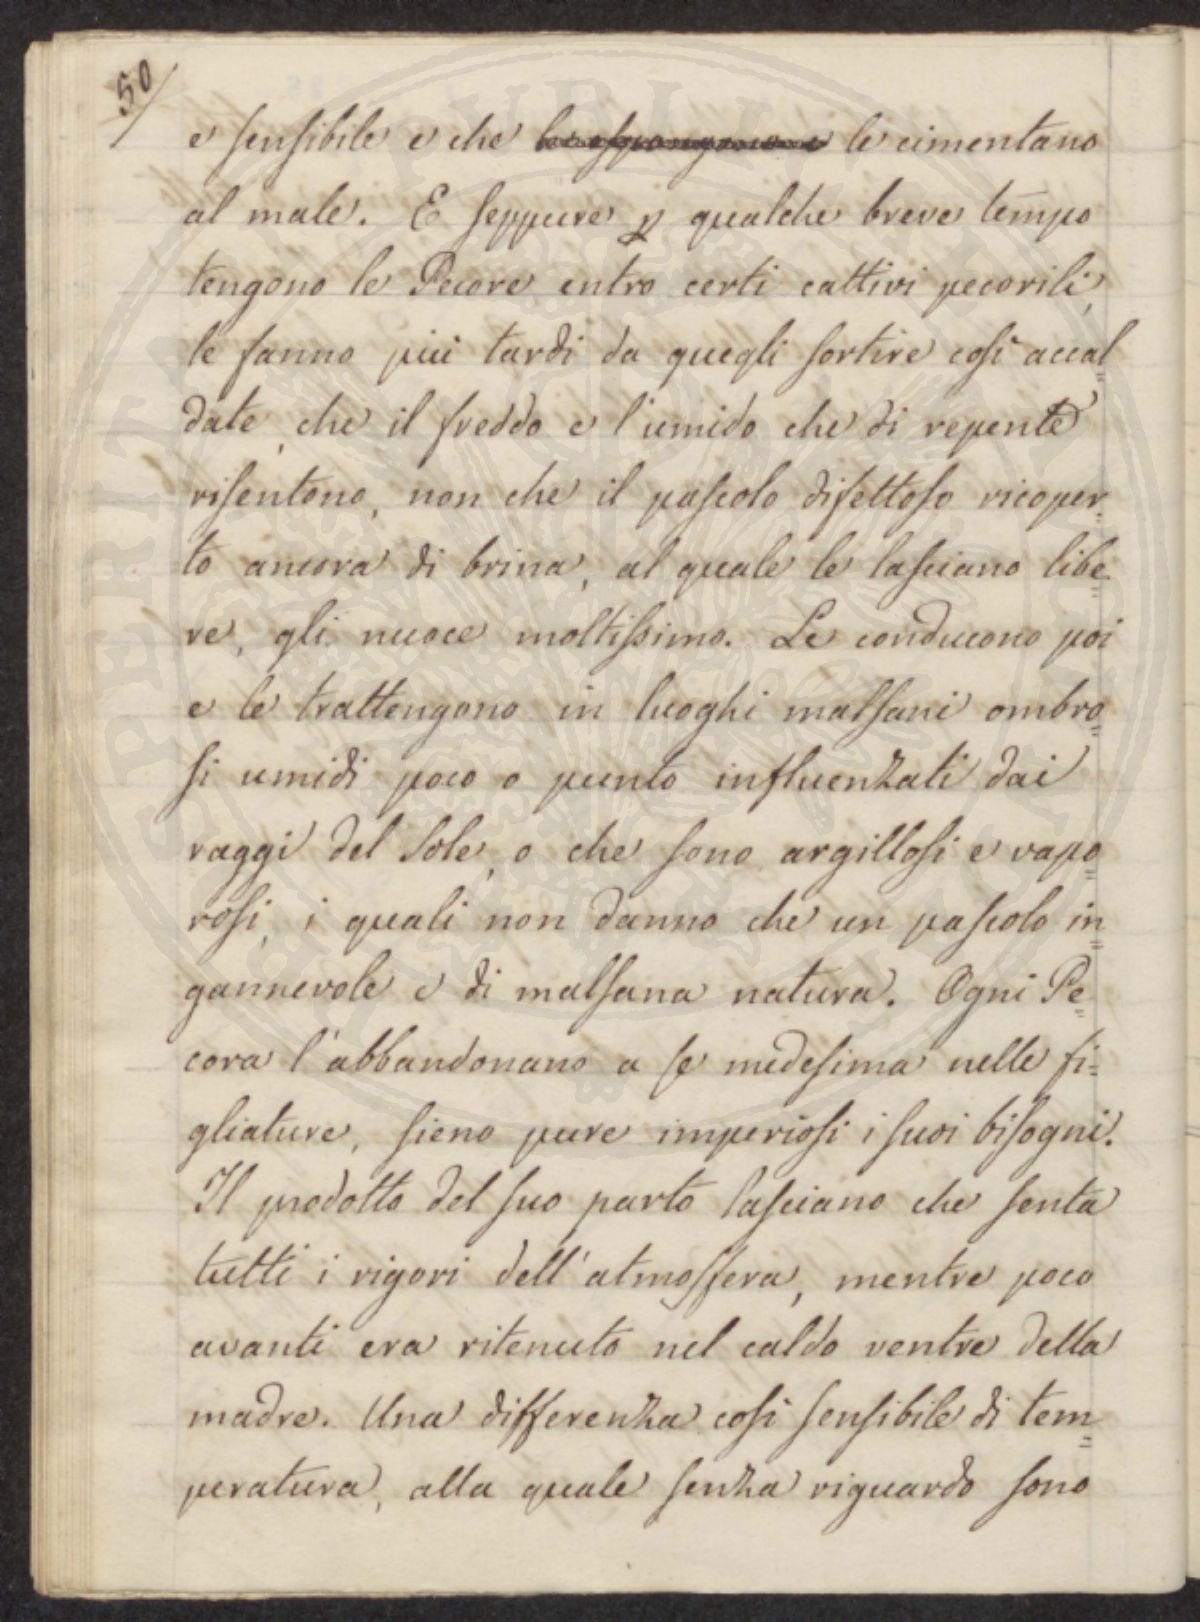 50/
e sensibile e che le espongono e le cimentano
al male. E seppure p qualche breve tempo
tengono le Pecore entro certi cattivi pecorili,
le fanno più tardi da quegli sortire così accal=
date, che il freddo e l'umido che di repente
risentono, non che il pascolo difettoso ricoper=
to ancora di brina, al quale le lasciano libe=
re, gli nuoce moltissimo. Le conducono poi
e le trattengono in luoghi malsani ombro=
si umidi poco o punto influenzati dai
raggi del Sole, o che sono argillosi e vapo=
rosi, i quali non danno che un pascolo in=
gannevole e di malsana natura. Ogni Pe=
cora l'abbandonano a se medesima nelle fi=
gliature, sieno pure imperiosi i suoi bisogni.
Il prodotto del suo parto lasciano che senta
tutti i rigori dell'atmosfera, mentre poco
avanti era ritenuto nel caldo ventre della
madre. Una differenza così sensibile di tem=
peratura, alla quale senza riguardo sono